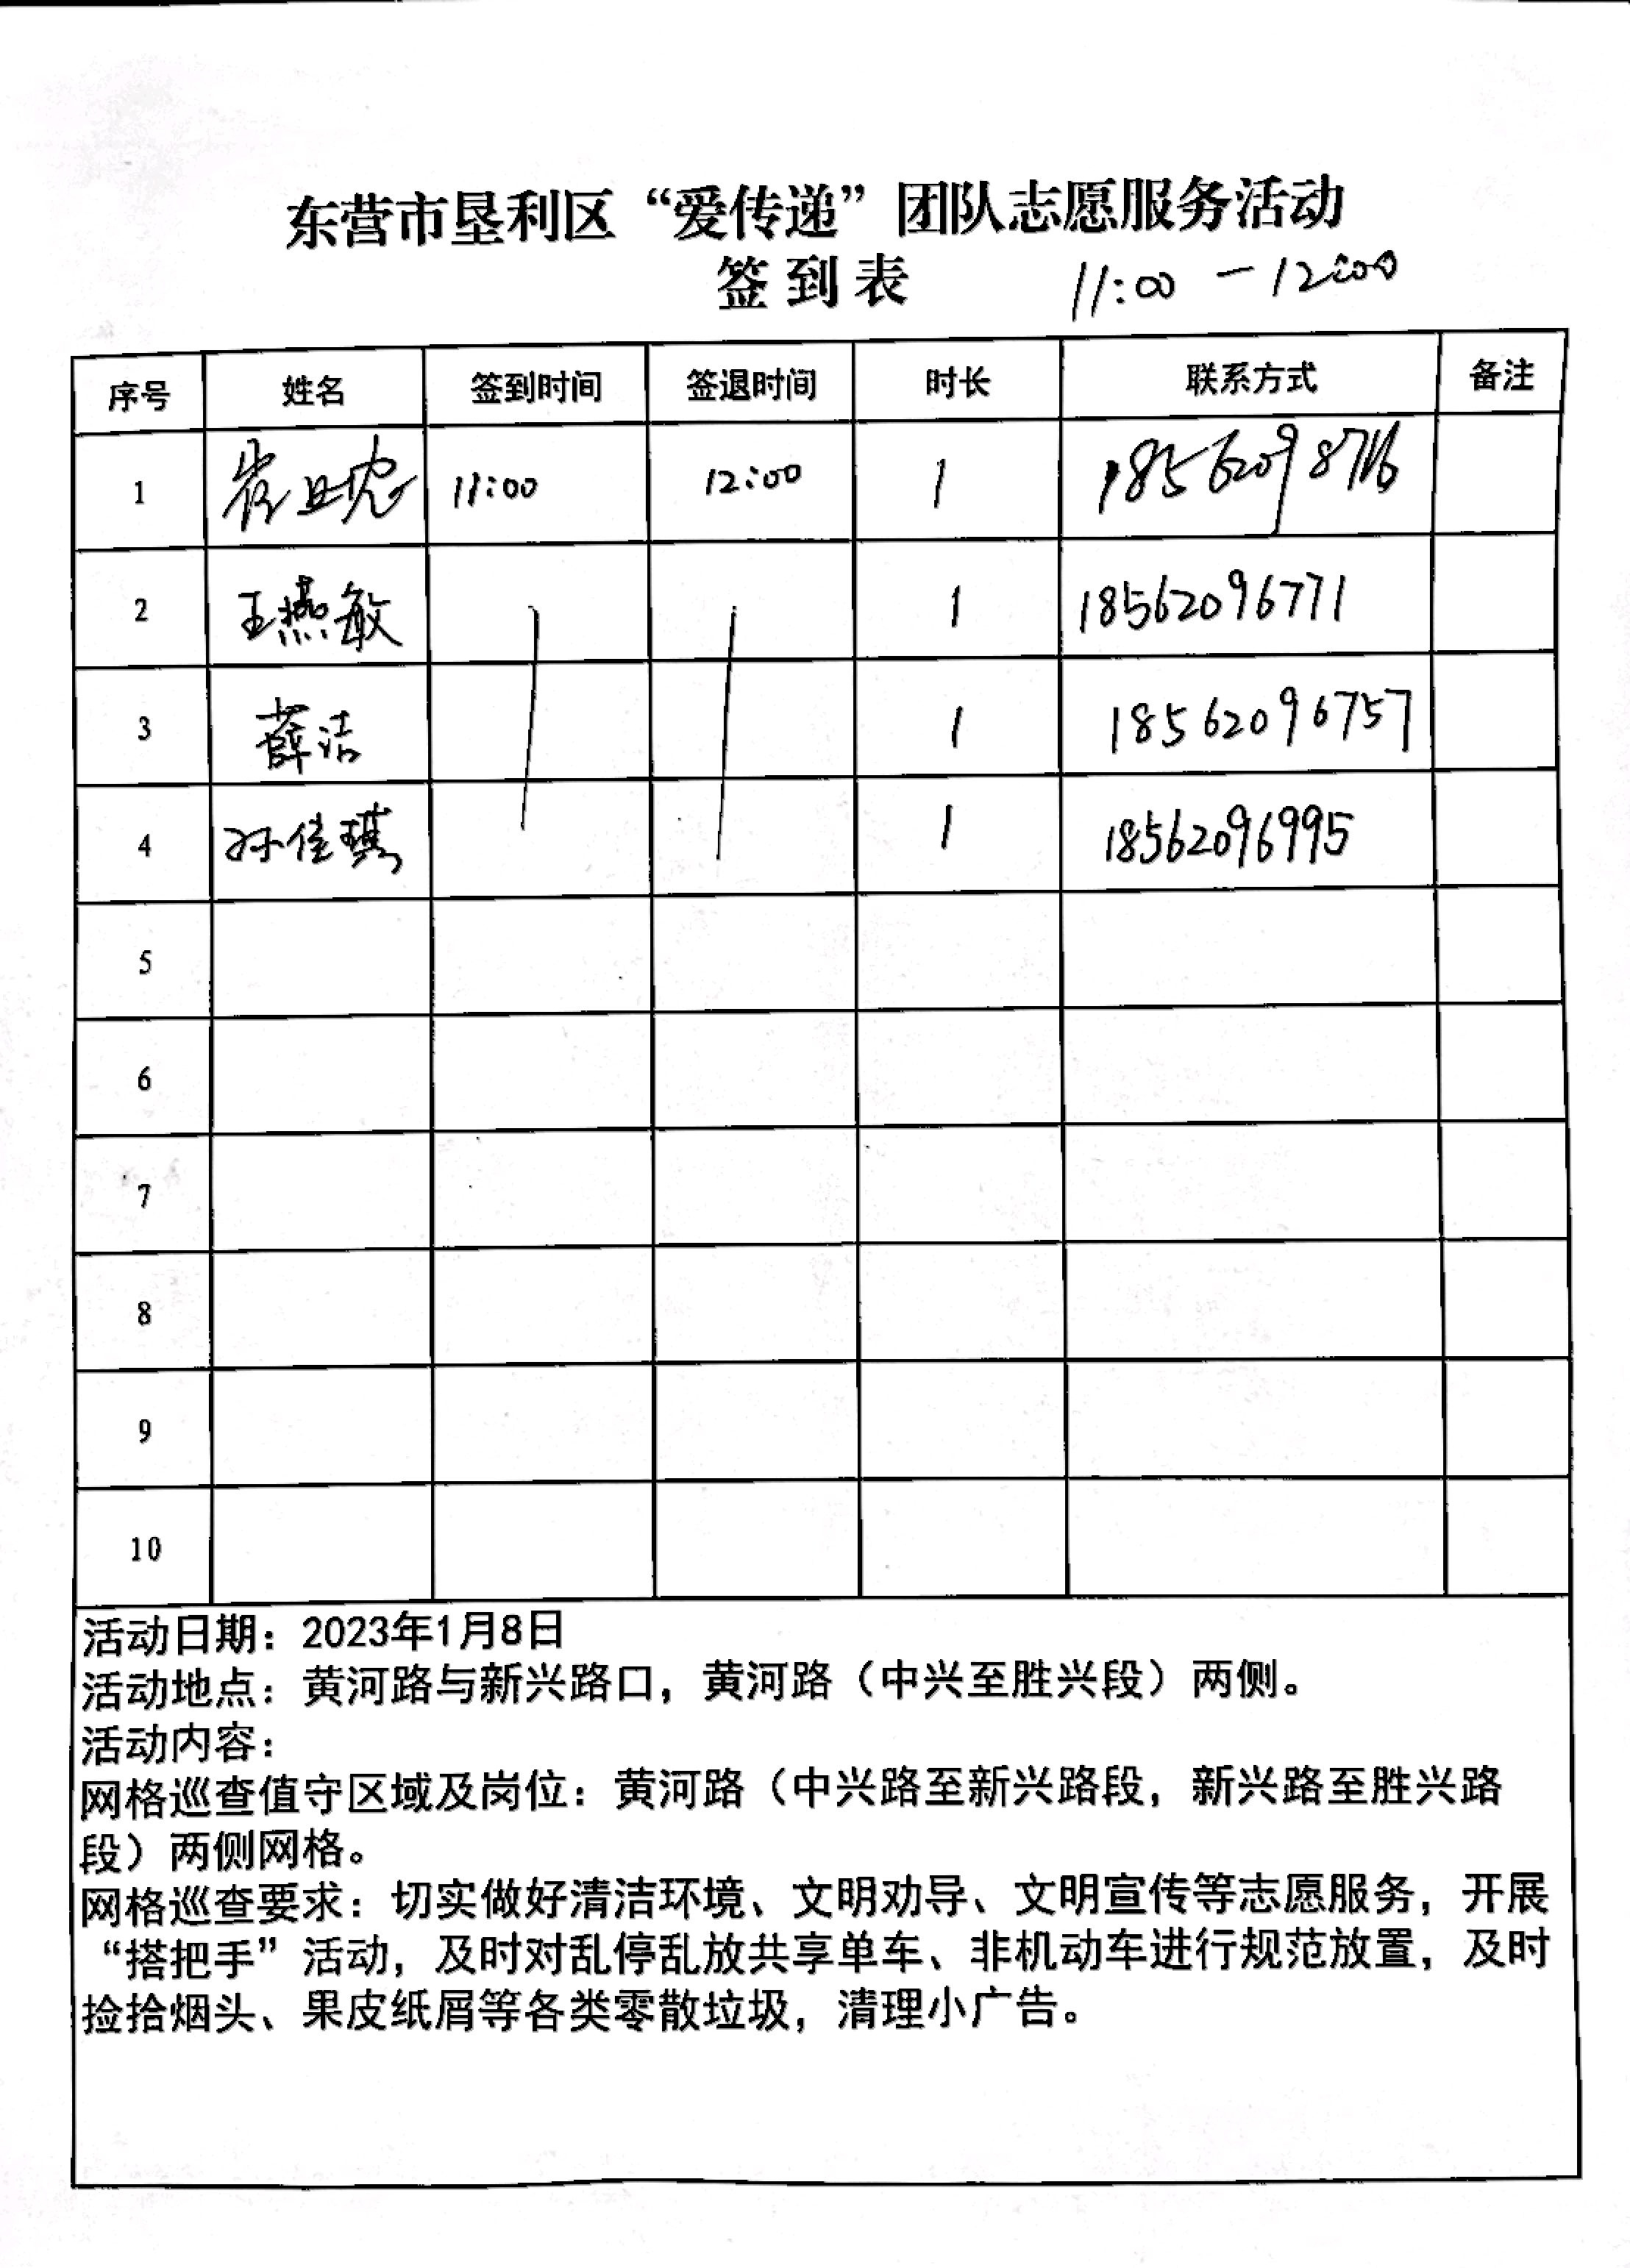 东营市垦利区“爱传递”团队志愿服务活动
签到表 11:00 - 12:00
序号 姓名 签到时间 签退时间 时长 联系方式 备注
1 11:00 12:00 1 18562098716
2 王燕敏 1 18562096771
3 薛洁 1 18562096757
4 孙佳琪 1 18562096995
5
6
7
8
9
10
活动日期：2023年1月8日
活动地点：黄河路与新兴路口，黄河路（中兴至胜兴段）两侧。
活动内容：
网格巡查值守区域及岗位：黄河路（中兴路至新兴路段，新兴路至胜兴路
段）两侧网格。
网格巡查要求：切实做好清洁环境、文明劝导、文明宣传等志愿服务，开展
“搭把手”活动，及时对乱停乱放共享单车、非机动车进行规范放置，及时
捡拾烟头、果皮纸屑等各类零散垃圾，清理小广告。